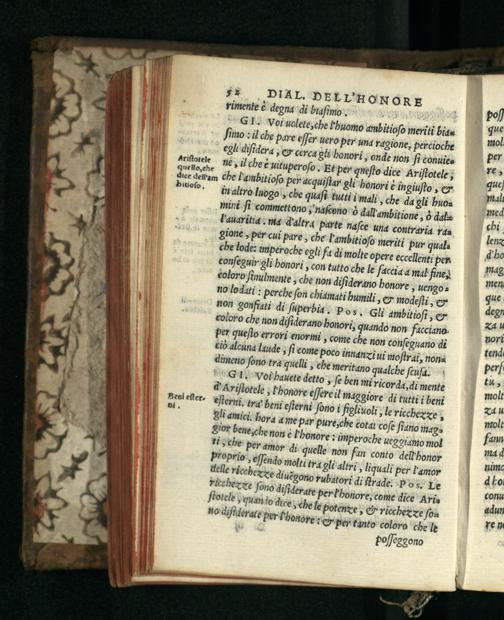 52 DIAL. DELL'HONORE
rimente è degna di biasimo.
GI. Voi uolete, che l'huomo ambitioso meriti bia-
simo: il che pare esser uero per una ragione, percioche
egli disidera, & cerca gli honori, onde non si conuie-
ne, il che è uituperoso. Et per questo dice Aristotele,
che l'ambitioso per acquistar gli honori è ingiusto, &
in altro luogo, che quasi tutti i mali, che da gli huo-
mini si commettono, nascono ò dall'ambitione, ò dal-
l'auaritia. ma d'altra parte nasce una contraria ra-
gione, per cui pare, che l'ambitioso meriti pur qual-
che lode: imperoche egli fa di molte opere eccellenti per
conseguir gli honori, con tutto che le faccia a mal fine,
coloro similmente, che non disiderano honore, uengo-
no lodati: perche son chiamati humili, & modesti, &
non gonfiati di superbia. Pos. Gli ambitiosi, &
coloro che non disiderano honori, quando non facciano
per questo errori enormi, come che non conseguano di
ciò alcuna laude, si come poco innanzi ui mostrai, non-
dimeno sono tra quelli, che meritano qualche scusa.
GI. Voi hauete detto, se ben mi ricorda, di mente
d'Aristotele, l'honore essere il maggiore di tutti i beni
esterni. tra' beni esterni sono i figliuoli, le ricchezze,
gli amici. hora a me par pure, che cotai cose siano mag-
gior bene, che non è l'honore: imperoche ueggiamo mol
ti, che per amor di quelle non fan conto dell'honor
proprio, essendo molti tra gli altri, liquali per l'amor
delle ricchezze diuẽgono rubatori di strade. Pos. Le
ricchezze sono disiderate per l'honore, come dice Ari-
stotele, quando dice, che le potenze, & ricchezze so-
no disiderate per l'honore: & per tanto coloro che le
posseggono
Aristotele
quello, che
dice dell'am
bitioso.
Beni ester-
ni.